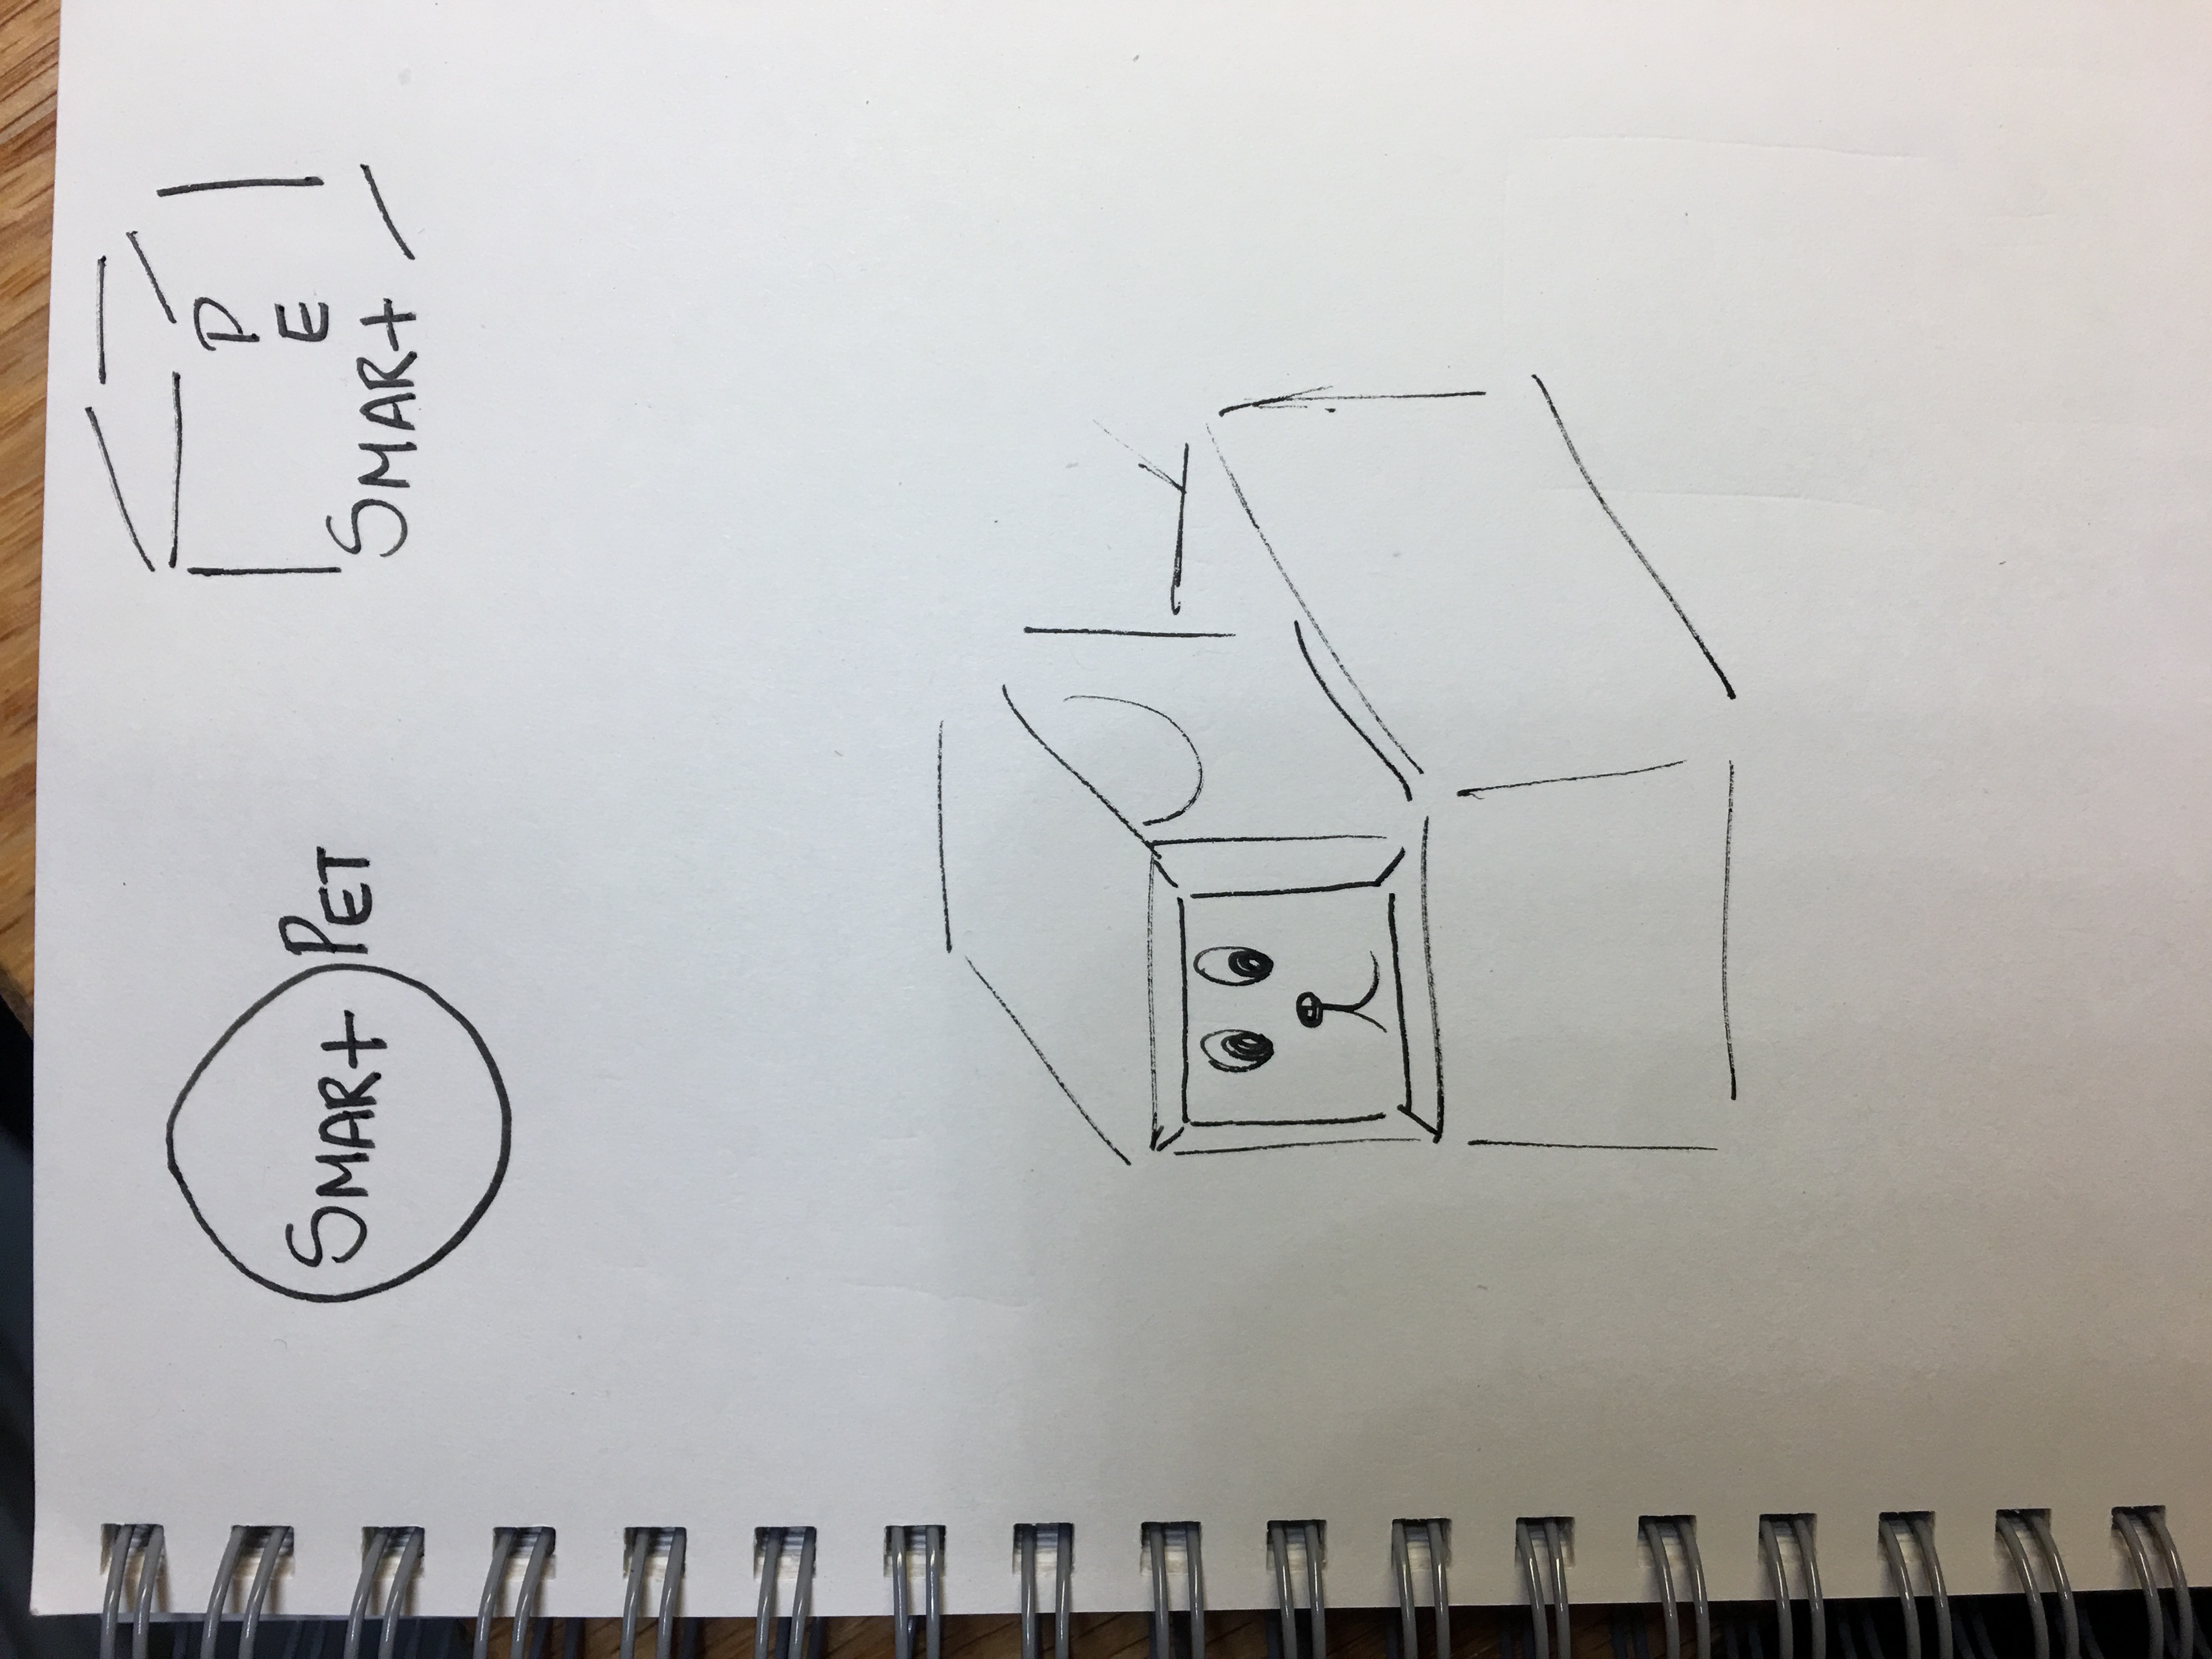 SMART PET
P
E
SMART